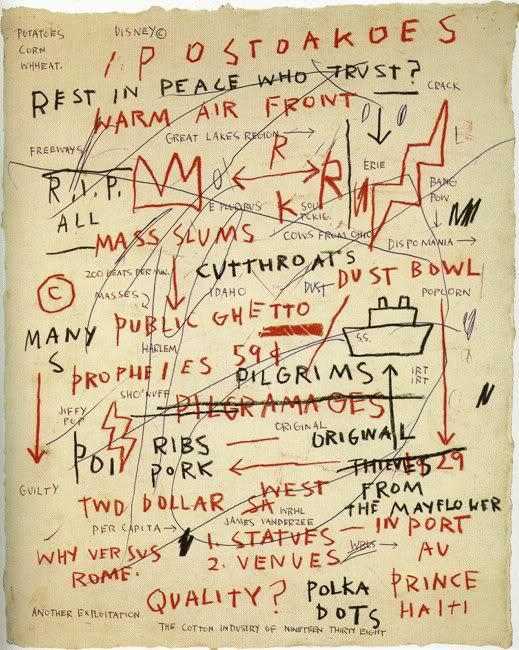 POTATOES
CORN
WHHEAT.
DISNEY©
1. POSTDAKOES
REST IN PEACE WHO TRUST?
WARM AIR FRONT
CRACK
GREAT LAKES REGION →
FREEWAYS
R
R
ERIE
R.I.P.
BANG
POW
E PLURIBUS
K
ALL
COWS FROM OHIO
DISPOMANIA →
MASS SLUMS
200 BEATS PER MIN.
CUTTHROATS
DUST BOWL
©
MASSES
IDAHO
DUST
POPCORN
MANY
S
PUBLIC GHETTO
S.S.
HARLEM
59¢
PROPHEIES
PILGRIMS
IRT
IRT
SHO'NUFF
PILGRAMAGES
JIFFY
POP
ORIGINAL
ORIGINAL
POI
RIBS
PORK
THIEVES
29
GUILTY
FROM
THE MAYFLOWER
TWO DOLLAR
WEST
SA
WRHL
JAMES VANDERZEE
PER CAPITA →
1. STATUES — IN PORT
AU
WHY VERSUS
ROME.
2. VENUES
WRLS →
PRINCE
HAITI
QUALITY?
POLKA
DOTS
ANOTHER EXPLOITATION
THE COTTON INDUSTRY OF NINETEEN THIRTY EIGHT